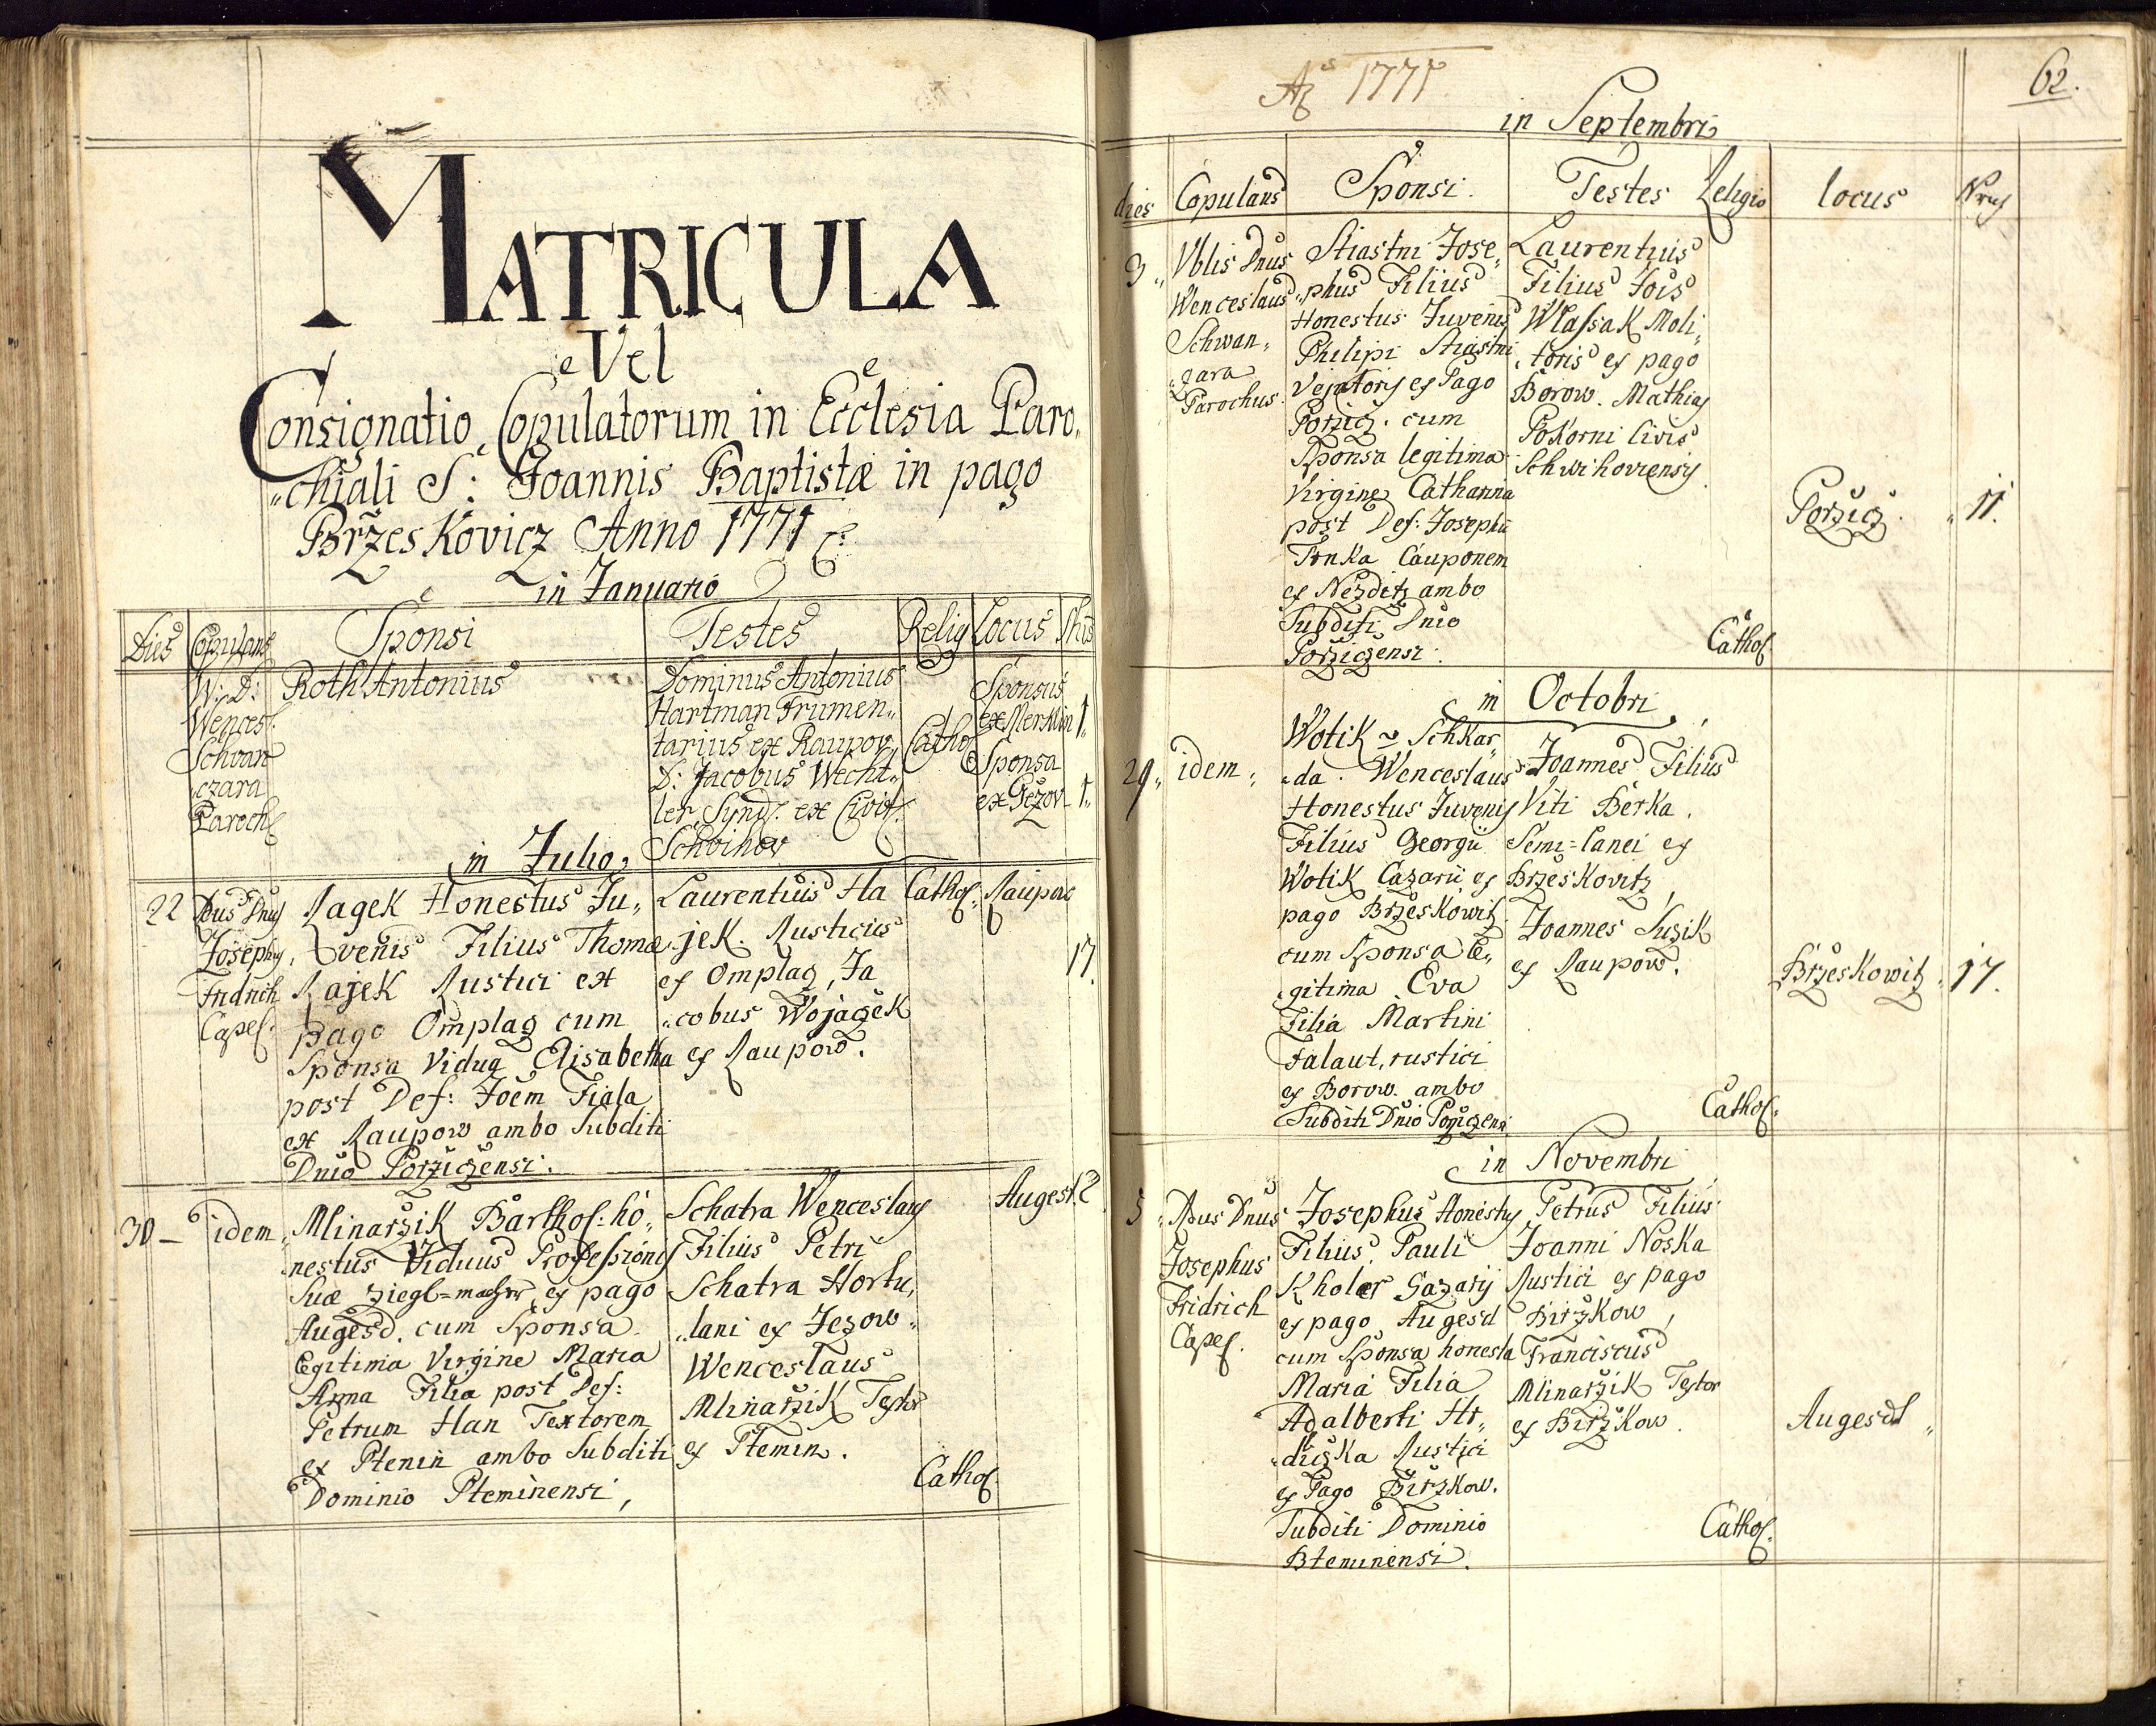 MATRICULA
Vel
Consignatio Copulatorum in Ecclesia Paro„
„chiali S: Joannis Baptistæ in pago
Brzeskovicz Anno 1771
in Januario
Dies Copulans Sponsi Testes Relig Locus
W: D:
Wences:
Schvan
„czara
Paroch
Roth Antonius
Dominus Antonius
Hartman Frumen„
tarius ex Raupov
D: Jacobus Wecht„
ler, Synd. ex Civit.
Schvihov
Cathol
Sponsus
ex Merklin 1„
Sponsa
ex Gezov 1„
in Julio
22
Dnus
Josephus
Fridrich
Capel.
Ragek Honestus Ju„
venis Filius Thomæ
Rajek Rustici ex
pago Omplaz cum
Sponsa Vidua Elisabetha
post Def: Joēm Fiala
ex Raupow ambo Subditi
Dnio Porziczensi.
Laurentius Ha
jek. Rusticus
ex Omplaz, Ja
„cobus Wojaczek
ex Raupow.
Cathol: Raupow
17.
30 – idem„
Mlinarzik Barthol: ho„
nestus Viduus Professionis
Suæ Ziegl=macher ex pago
Augesd. cum Sponsa
legitima Virgine Maria
Anna Filia post Def:
Petrum Han Textorem
ex Ptenin ambo Subditi
Dominio Pteminensi,
Schatra Wenceslaus
Filius Petri
Schatra Hortu„
„lani ex Jezow„
Wenceslaus
Mlinarzik Textor
ex Ptemin.
Cathol.
Augesd. 2
Aō 1771.
62.
in Septembri
dies Copulans Sponsi. Testes Religio locus Nrus
3„
Vblis Dnus
Wenceslaus
Schwan„
„zara
Parochus
Stiastni Jose„
„phus Filius
Honestus Juvenis
Philipi Stiastni
Venatoris ex Pago
Porzicz. cum
Sponsa legitima
Virgine Catharina
post Def: Josephū
Tonka Cauponem
ex Nezditz ambo
Subditi Dnio
Porziczensi.
Laurentius
Filius Jois
Wlassak Moli„
„toris ex pago
Borow. Mathias
Pokorni Civis
Schwihoviensis.
Cathol
Porzicz. „11.
in Octobri
29„ idem„
Wotik v Schkar„
„da. Wenceslaus
Honestus Juvenis
Filius Georgii
Wotik Cazarii ex
pago Brzeskowitz
cum Sponsa le„
„gitima Eva
Filia Martini
Falaut, rustici
ex Borow. ambo
Subditi Dnio Porziczensi
Joannes Filius
Viti Berka.
Semi=lanei ex
Brzeskovitz,
Joannes Suzik
ex Raupow.
Cathol:
Brzeskowitz„ 17.
in Novembri
5„
Rdus Dnus
Josephus
Fridrich
Capel.
Josephus Honestus
Filius Pauli
Kholer Gazarij
ex pago Augesd
cum Sponsa honesta
Maria Filia
Adalberti Hr„
„duska Rustici
ex Pago Birzkow.
Subditi Dominio
Bteminensi.
Petrus Filius
Joanni Noska
Rustici ex pago
Birzkow,
Franciscus
Mlinarzik Textor
ex Birzkow.
Cathol.
Augesdt „